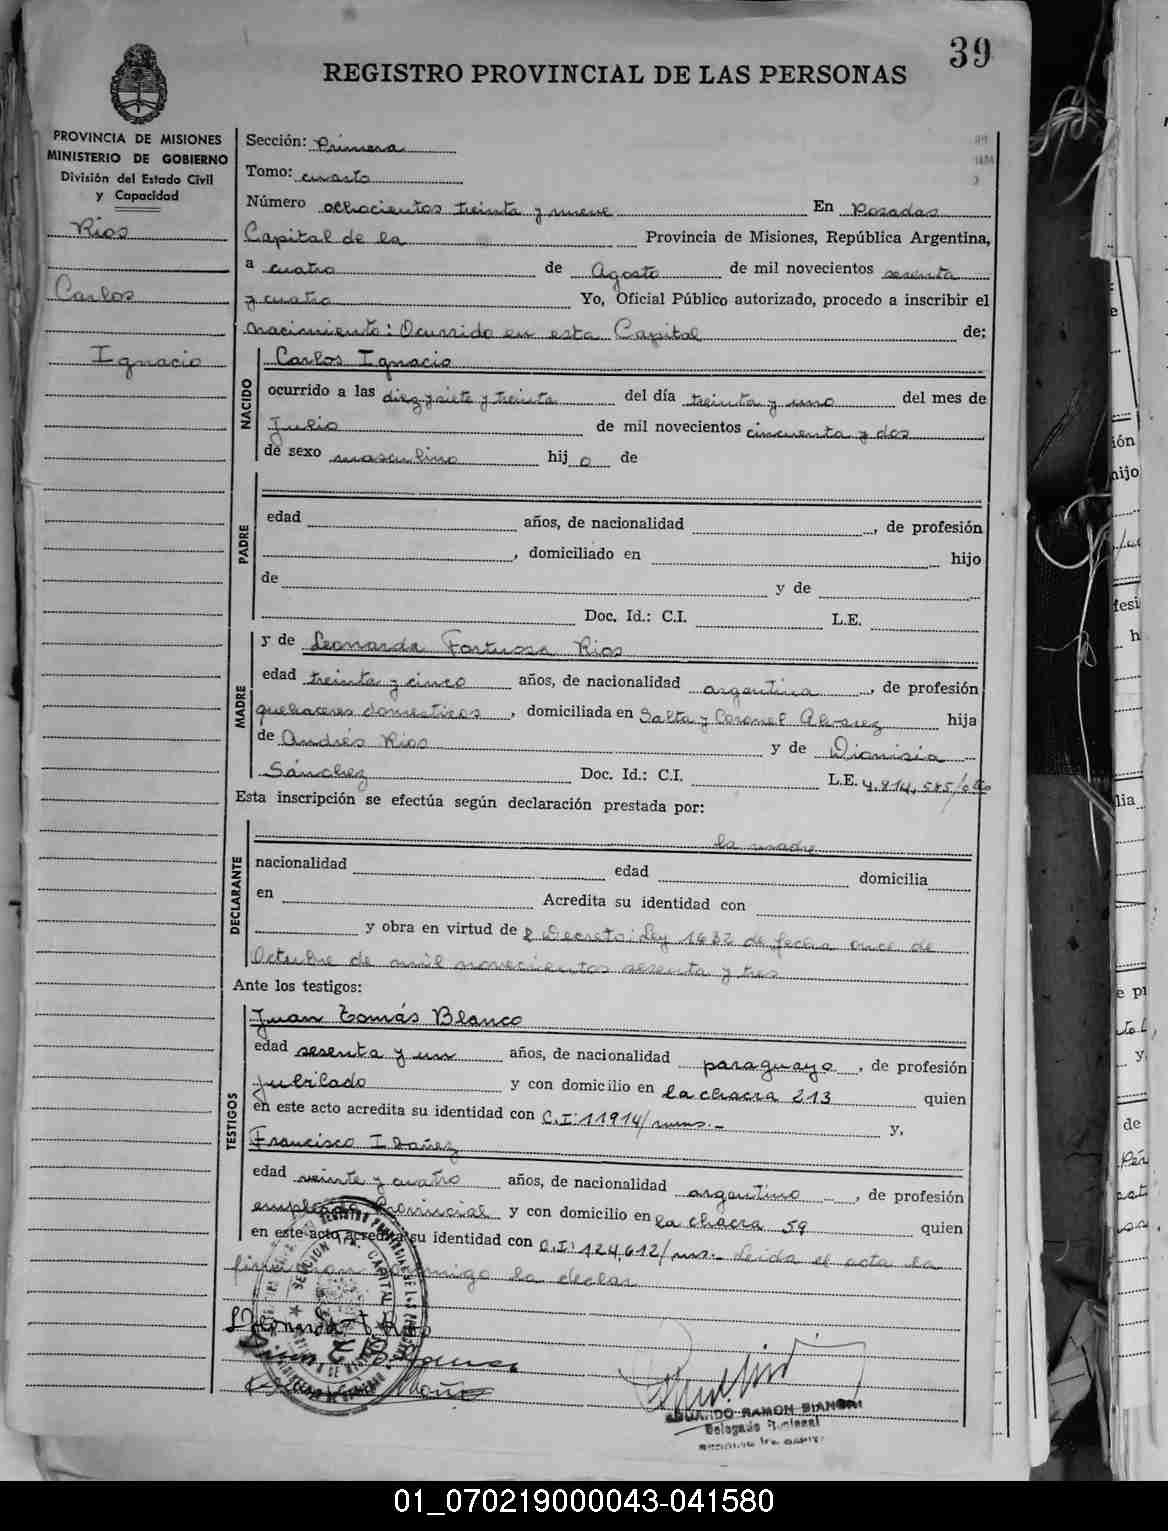 39
REGISTRO PROVINCIAL DE LAS PERSONAS
PROVINCIA DE MISIONES
MINISTERIO DE GOBIERNO
División del Estado Civil
y Capacidad
Rios
Carlos
Ignacio
Sección: Primera
Tomo: cuarto
Número ochocientos treinta y nueve En Posadas
Capital de la Provincia de Misiones, República Argentina,
a cuatro de Agosto de mil novecientos sesenta
y cuatro Yo, Oficial Público autorizado, procedo a inscribir el
nacimiento: Ocurrido en esta Capital de:
NACIDO
Carlos Ignacio
ocurrido a las diez y siete y treinta del día treinta y uno del mes de
Julio de mil novecientos cincuenta y dos
de sexo masculino hijo de
PADRE
edad años, de nacionalidad , de profesión
, domiciliado en hijo
de y de
Doc. Id.: C.I. L.E.
MADRE
y de Leonarda Fortuosa Rios
edad treinta y cinco años, de nacionalidad argentina , de profesión
quehaceres domesticos , domiciliada en Salta y Coronel Alvarez hija
de Andrés Rios y de Dionisia
Sánchez Doc. Id.: C.I. L.E. 4.814.585/
Esta inscripción se efectúa según declaración prestada por:
DECLARANTE
la madre
nacionalidad edad domicilia
en Acredita su identidad con
y obra en virtud de Decreto: Ley 1632 de fecha once de
Octubre de mil novecientos sesenta y tres
Ante los testigos:
TESTIGOS
Juan Tomás Blanco
edad sesenta y un años, de nacionalidad paraguayo , de profesión
jubilado y con domicilio en la chacra 213 quien
en este acto acredita su identidad con C.I: 11914/mns.- y,
Francisco Ibañez
edad veinte y cuatro años, de nacionalidad argentino , de profesión
empleado Provincial y con domicilio en la chacra 59 quien
en este acto acredita su identidad con C.I: 124.612/ms.- Leida el acta la
firmaron conmigo la declar
EDUARDO RAMON BIANCHI
Delegado Seccional
01_070219000043-041580